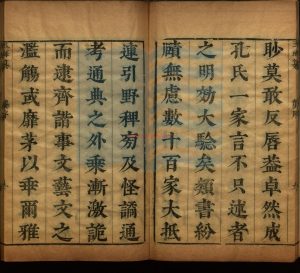 眇莫敢反唇蓋卓然成
孔氏一家言不只述者
之明効大驗矣類書紛
賾無慮數十百家大抵
連引野稗旁及怪譎通
考通典之外乘漸激詭
而逮齊諧事文藝文之
濫觴或靡茅以乖爾雅